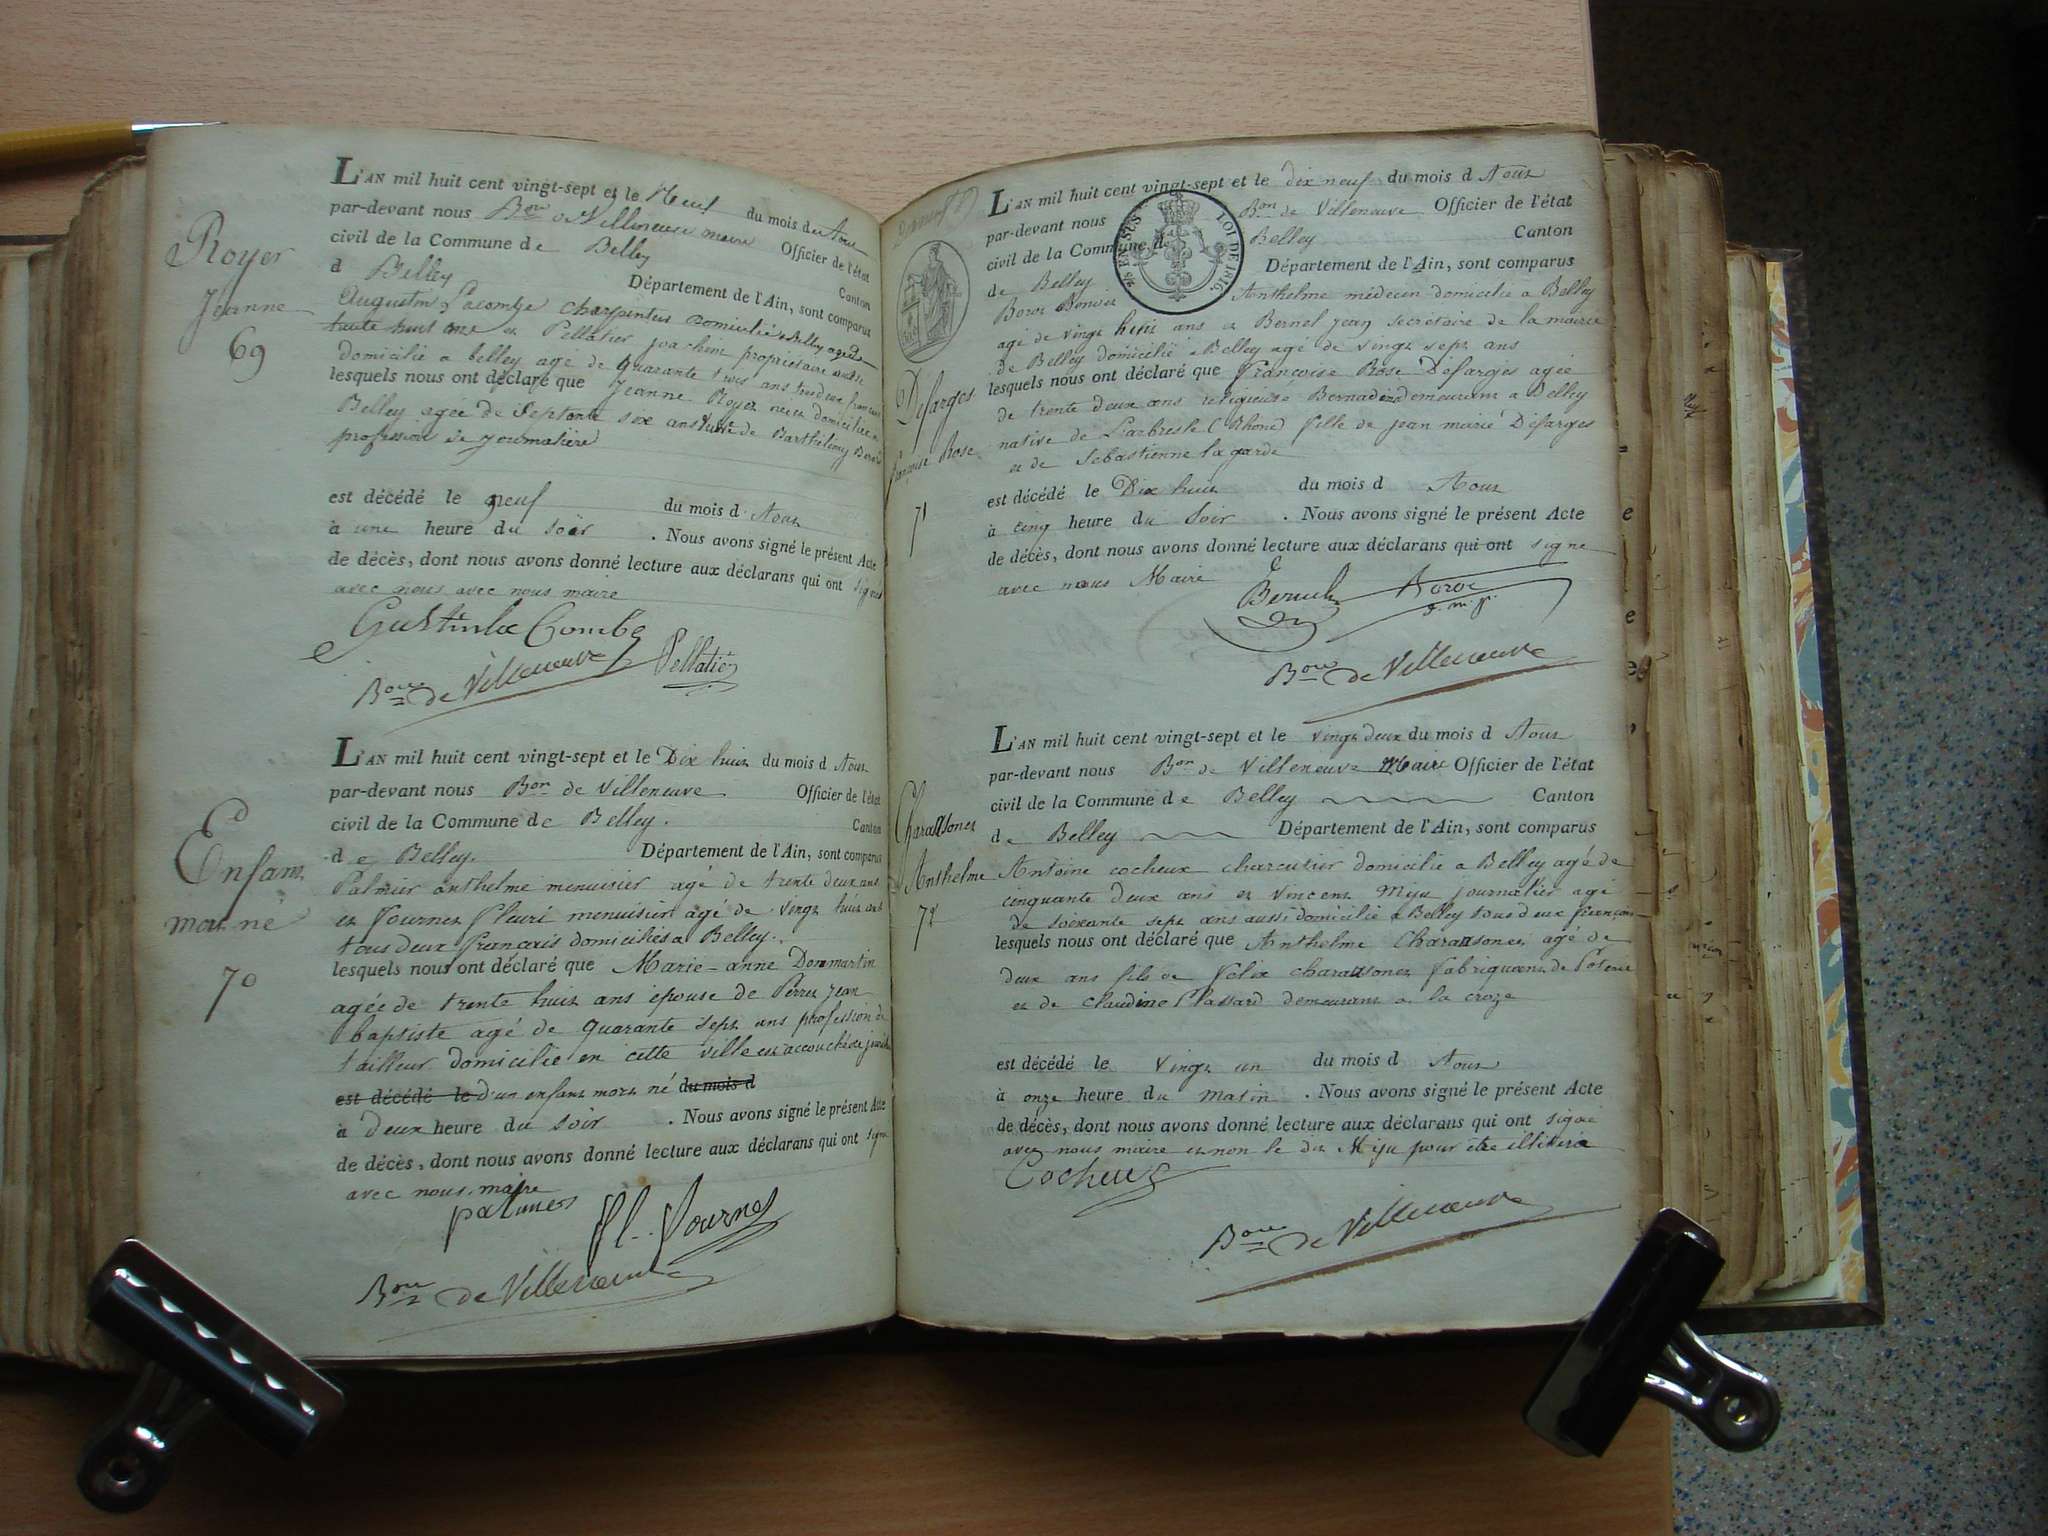 Royer
Jeanne
69
L'AN mil huit cent vingt-sept et le Neuf du mois d Aout
par-devant nous Bon de Villeneuve maire Officier de l'état
civil de la Commune de Belley Canton
d Belley Département de l'Ain, sont comparus
Augustin Lacombe charpentier domicilié a Belley agé de
trente huit ans et Pellatier joachim propriétaire aussi
domicilié a belley agé de quarante trois ans tous deux francais
lesquels nous ont déclaré que Jeanne Royer veuve domiciliée a
Belley agée de septante six ans de Barthélemy
profession de journalière
est décédé le neuf du mois d Aout
à une heure du soir . Nous avons signé le présent Acte
de décès, dont nous avons donné lecture aux déclarans qui ont signés
avec nous avec nous maire
Gustin la Combe
Bon de Villeneuve Pellatié
Enfant
mort né
70
L'AN mil huit cent vingt-sept et le Dix huit du mois d Aout
par-devant nous Bon de Villeneuve Officier de l'état
civil de la Commune de Belley. Canton
de Belley. Département de l'Ain, sont comparus
Palmier anthelme menuisier agé de trente deux ans
et fournet fleuri menuisier agé de vingt huit ans
tous deux francais domiciliés a Belley.
lesquels nous ont déclaré que Marie-anne Dommartin
agée de trente huit ans épouse de Perret jean
baptiste agé de quarante sept ans profession de
tailleur domicilié en cette ville est accouchée
est décédé le d'un enfant mort né du mois d
à deux heure du soir . Nous avons signé le présent Acte
de décès, dont nous avons donné lecture aux déclarans qui ont signé
avec nous maire
palmier fl. fournet
Bon de Villeneuve
L'AN mil huit cent vingt-sept et le dix neuf du mois d Aout
par-devant nous Bon de Villeneuve Officier de l'état
civil de la Commune de Belley Canton
de Belley Département de l'Ain, sont comparus
EN SUS LOI DE 1816.
Anthelme médecin domicilié a Belley
agé de vingt huit ans et Bernel jean secretaire de la mairie
de Belley domicilié a Belley agé de vingt sept ans
Défarges
françoise Rose
71
lesquels nous ont déclaré que françoise Rose Défarges agée
de trente deux ans religieuse Bernadine demeurant a Belley
native de Larbresle (Rhône) fille de jean marie Défarges
et de Sebastienne la garde
est décédé le Dix huit du mois d Aout
à cinq heure du soir . Nous avons signé le présent Acte
de décès, dont nous avons donné lecture aux déclarans qui ont signé
avec nous Maire
Bon de Villeneuve
L'AN mil huit cent vingt-sept et le vingt deux du mois d Aout
par-devant nous Bon de Villeneuve Maire Officier de l'état
civil de la Commune de Belley Canton
de Belley Département de l'Ain, sont comparus
Charassonet
Anthelme
72
Antoine cocheux charcutier domicilié a Belley agé de
cinquante deux ans et vincent Miju journalier agé
de soixante sept ans aussi domicilié a Belley tous deux français
lesquels nous ont déclaré que Anthelme Charassonet agé de
deux ans fils de felix charassonet fabriquant de Poterie
et de claudine Plassard demeurant a la croze
est décédé le vingt un du mois d Aout
à onze heure du matin . Nous avons signé le présent Acte
de décès, dont nous avons donné lecture aux déclarans qui ont signé
avec nous maire et non le dit Miju pour être illitéré
Cocheux
Bon de Villeneuve